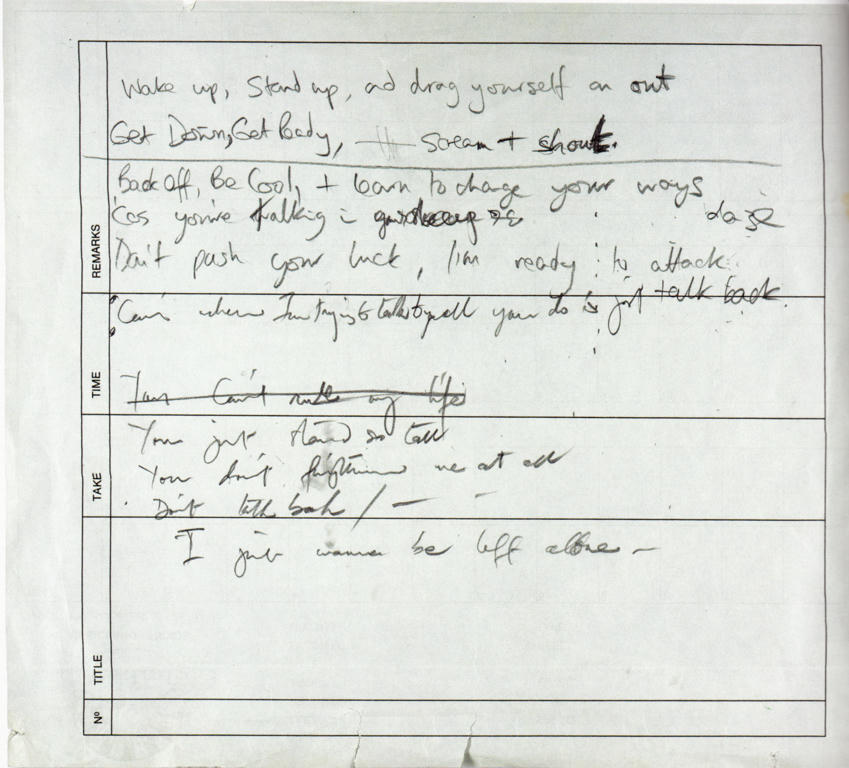 Wake up, Stand up, and drag yourself on out
Get Down, Get Ready, scream + shout.
Back Off, Be Cool, + learn to change your ways
'Cos you're talking i
daze
Don't push your luck, I'm ready to attack
when I'm trying to talk to you all you do is just talk back
Can't my life
You just stand so tall
You don't frighten me at all
Don't talk back / —
I just wanna be left alone —
REMARKS
TIME
TAKE
TITLE
Nº